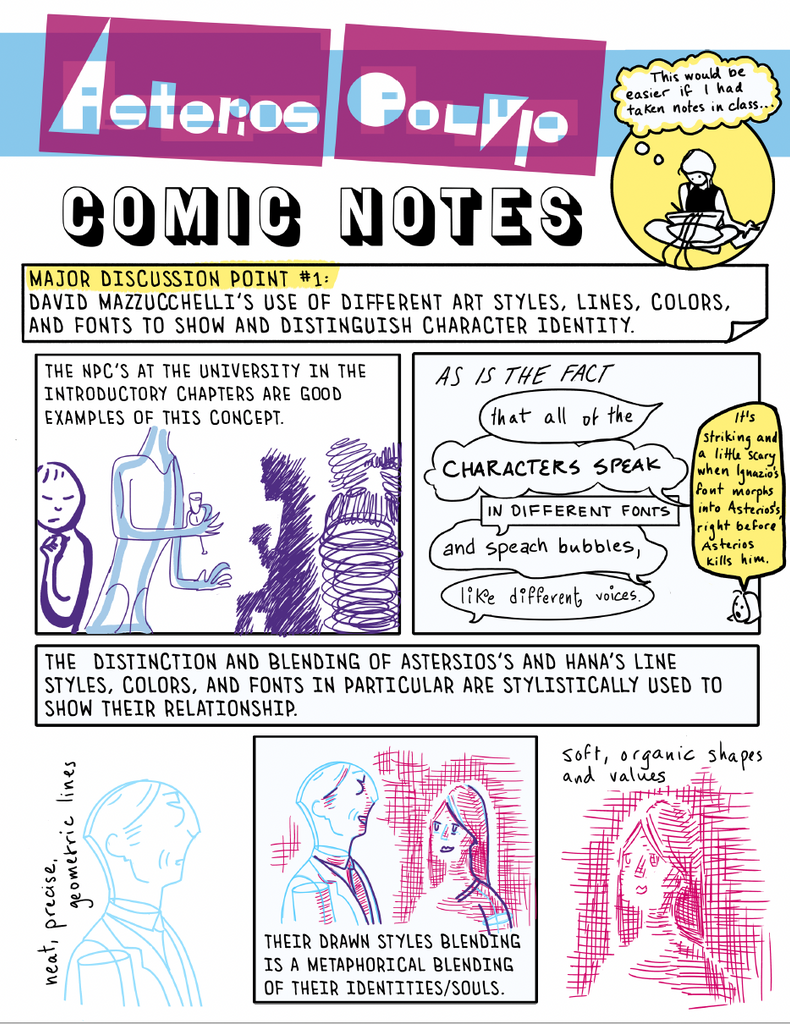 Asterios Polyp
This would be
easier if I had
taken notes in class...
COMIC NOTES
MAJOR DISCUSSION POINT #1:
DAVID MAZZUCCHELLI'S USE OF DIFFERENT ART STYLES, LINES, COLORS,
AND FONTS TO SHOW AND DISTINGUISH CHARACTER IDENTITY.
THE NPC'S AT THE UNIVERSITY IN THE
INTRODUCTORY CHAPTERS ARE GOOD
EXAMPLES OF THIS CONCEPT.
AS IS THE FACT
that all of the
CHARACTERS SPEAK
IN DIFFERENT FONTS
and speach bubbles,
like different voices.
It's
striking and
a little scary
when Ignazio's
font morphs
into Asterios's
right before
Asterios
kills him.
THE DISTINCTION AND BLENDING OF ASTERSIOS'S AND HANA'S LINE
STYLES, COLORS, AND FONTS IN PARTICULAR ARE STYLISTICALLY USED TO
SHOW THEIR RELATIONSHIP.
neat, precise,
geometric lines
THEIR DRAWN STYLES BLENDING
IS A METAPHORICAL BLENDING
OF THEIR IDENTITIES/SOULS.
soft, organic shapes
and values